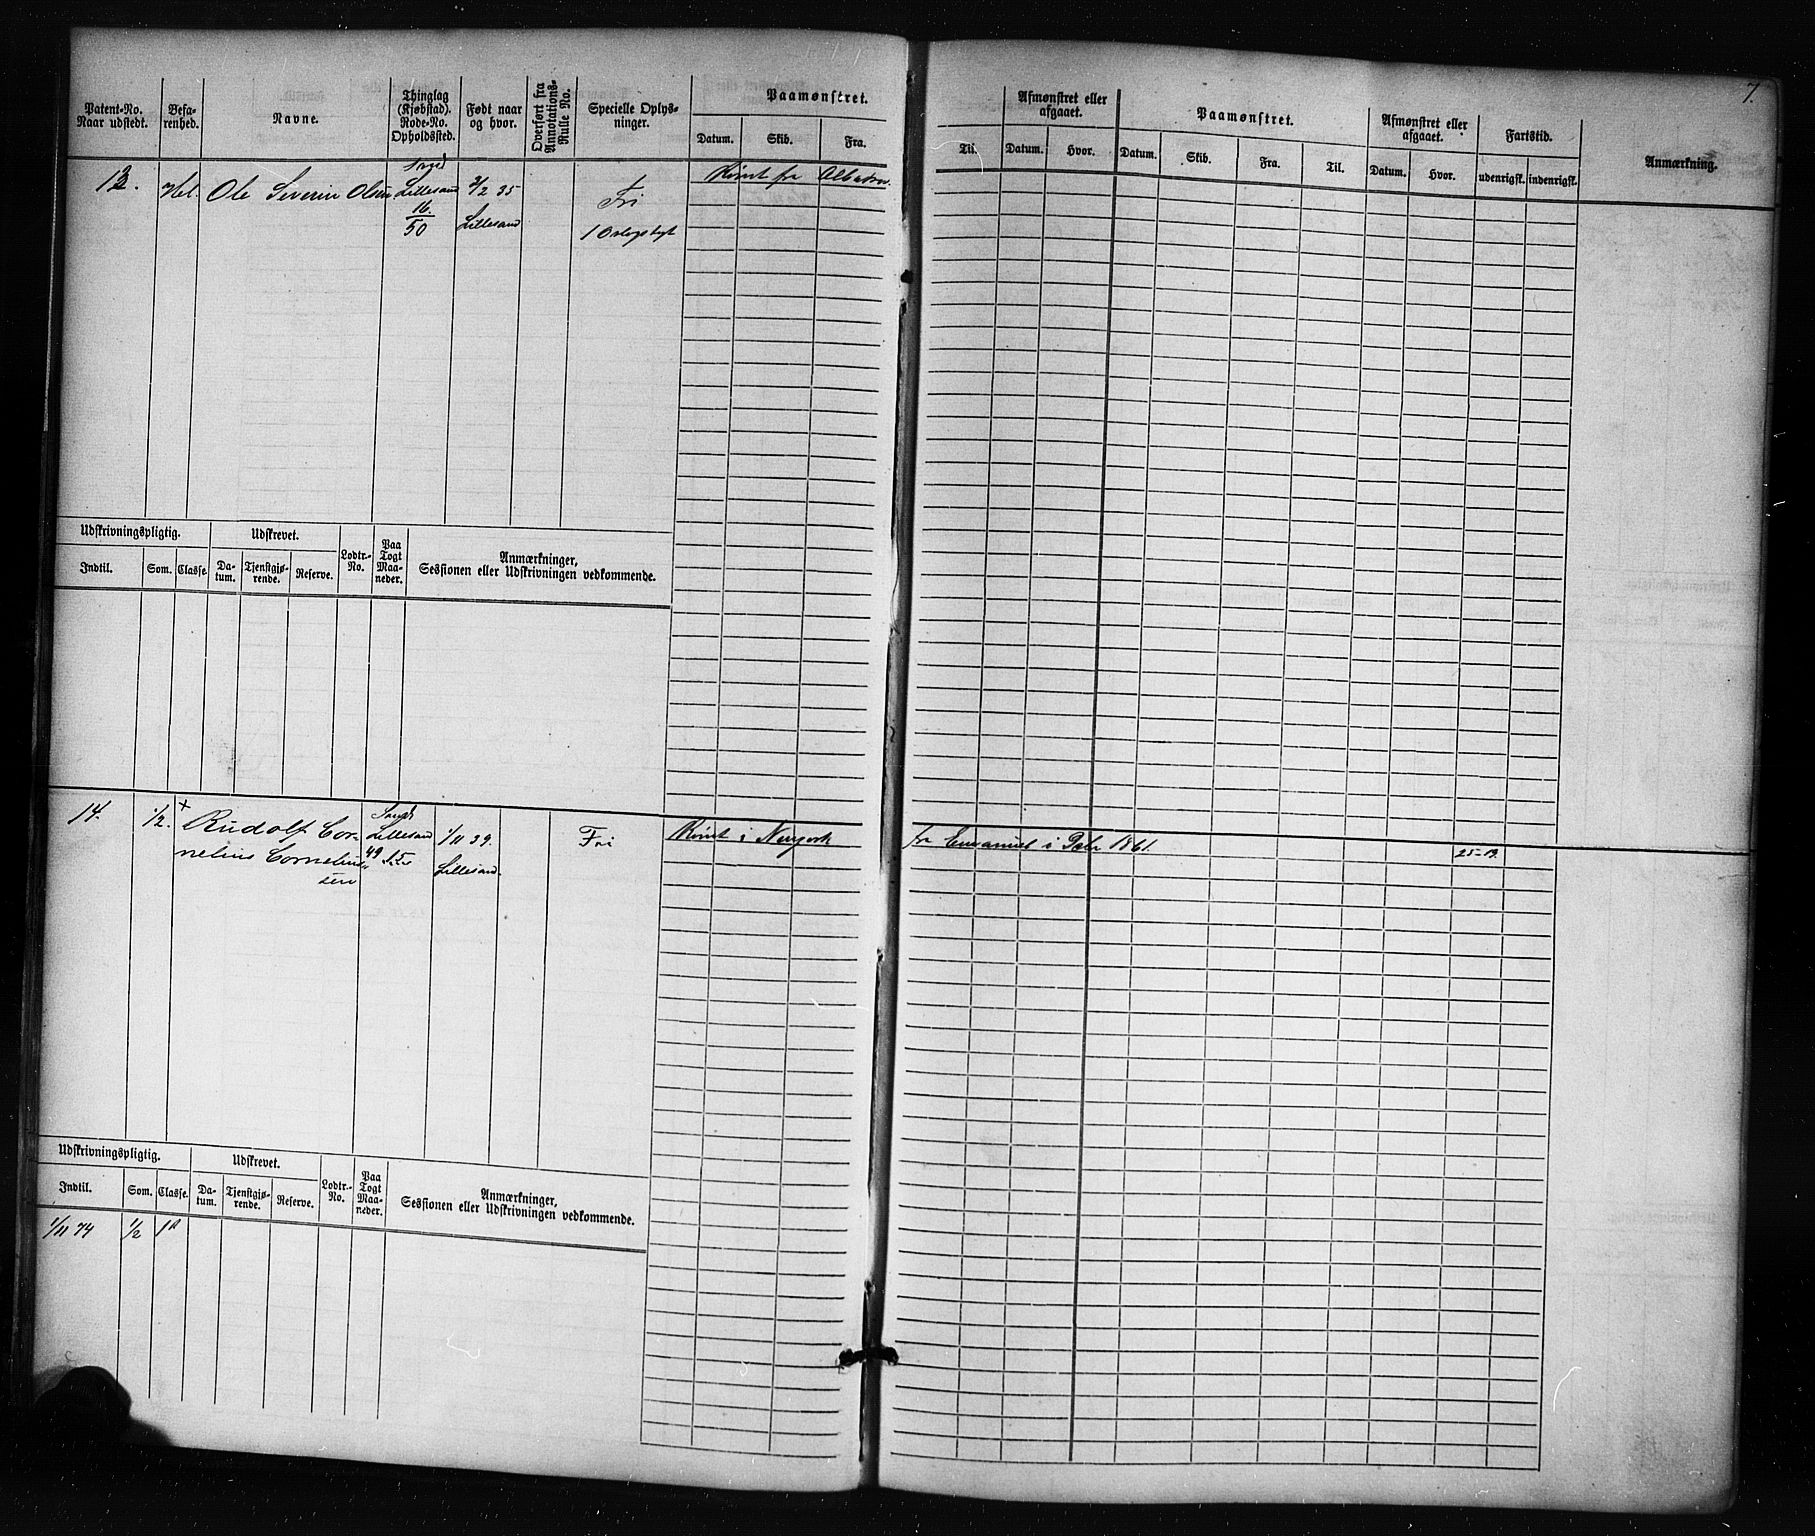 7.
Patent-No. Naar udstedt.
Befarenhed.
Navne.
Thinglag (Kjøbstad). Rode-No. Opholdssted.
Født naar og hvor.
Overført fra Annotations-Rulle No.
Specielle Oplysninger.
Paamønstret.
Datum. Skib. Fra.
Til.
Afmønstret eller afgaaet.
Datum. Hvor.
Paamønstret.
Datum. Skib. Fra. Til.
Afmønstret eller afgaaet.
Datum. Hvor.
Fartstid.
udenrigsk. indenrigsk.
Anmærkning.
13. Hel. Ole Severin Olsen Lillesand 2/2 35 Fri Rømt fra
16/50 Lillesand
Udskrivningspligtig. Udskrevet. Lodtr.-No. Paa Togt Maaneder. Anmærkninger, Sessionen eller Udskrivningen vedkommende.
Indtil. Som. Classe. Datum. Tjenstgjørende. Reserve.
14. 1/2. + Rudolf Cor- Lillesand 1/11 39. Fri Rømt i Newyork fra Emanuel i Decbr 1861. 25-19.
nelius Corneliu- 49 Lillesand.
sen
Udskrivningspligtig. Udskrevet. Lodtr.-No. Paa Togt Maaneder. Anmærkninger, Sessionen eller Udskrivningen vedkommende.
Indtil. Som. Classe. Datum. Tjenstgjørende. Reserve.
1/11 74 1/2 1A